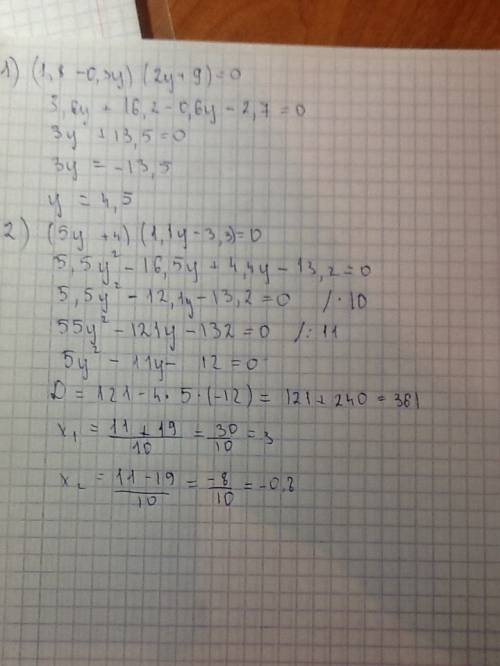 1) (1,8 - 0,3y) (2y + 9) = 0
3,6y + 16,2 - 0,6y - 2,7 = 0
3y + 13,5 = 0
3y = -13,5
y = 4,5
2) (5y + 4) (1,1y - 3,3) = 0
5,5y² - 16,5y + 4,4y - 13,2 = 0
5,5y² - 12,1y - 13,2 = 0 /· 10
55y² - 121y - 132 = 0 /: 11
5y² - 11y - 12 = 0
D = 121 - 4 · 5 · (-12) = 121 + 240 = 361
x₁ = (11 + 19)/10 = 30/10 = 3
x₂ = (11 - 19)/10 = -8/10 = -0,8